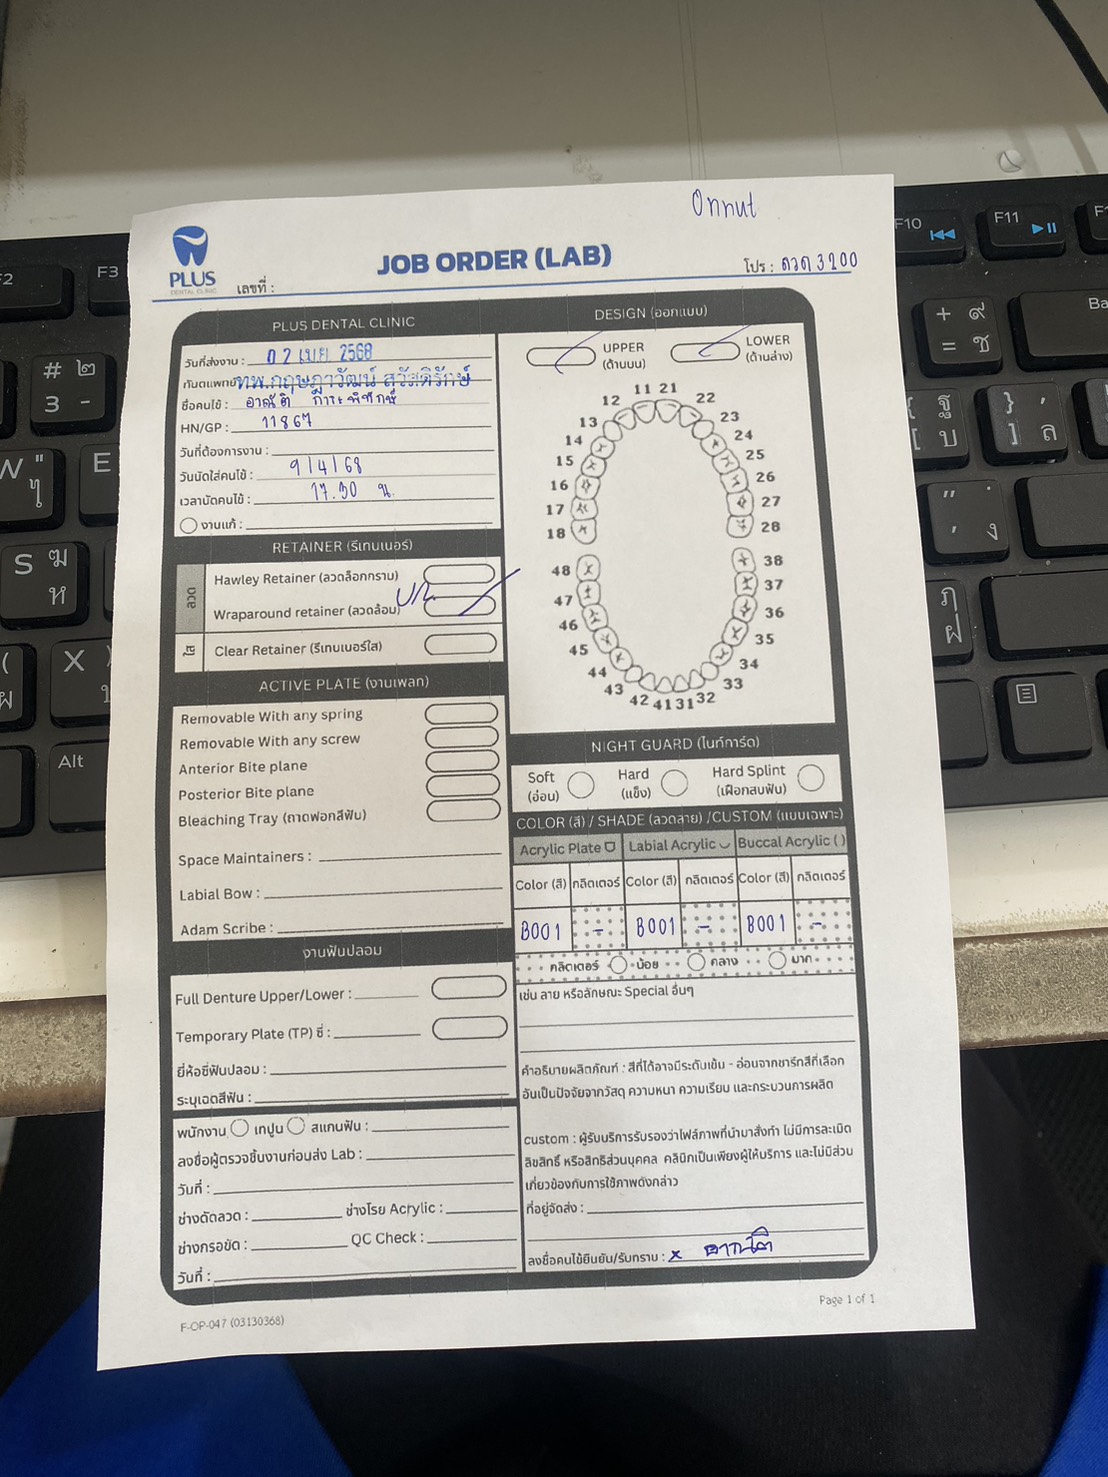 Onnut
PLUS
DENTAL CLINIC
JOB ORDER (LAB)
เลขที่ :
โปร : ลวด 3200
PLUS DENTAL CLINIC
วันที่ส่งงาน : 02 เม.ย 2568
ทันตแพทย์ ทพ.กฤษฎาวัฒน์ สวัสดิรักษ์
ชื่อคนไข้ : อาณัติ
HN/GP : 11867
วันที่ต้องการงาน :
วันนัดใส่คนไข้ : 9/4/68
เวลานัดคนไข้ : 17.30 น.
งานแก้ :
RETAINER (รีเทนเนอร์)
ลวด
Hawley Retainer (ลวดล็อกกราม)
Wraparound retainer (ลวดล้อม)
ใส
Clear Retainer (รีเทนเนอร์ใส)
ACTIVE PLATE (งานเพลท)
Removable With any spring
Removable With any screw
Anterior Bite plane
Posterior Bite plane
Bleaching Tray (ถาดฟอกสีฟัน)
Space Maintainers :
Labial Bow :
Adam Scribe :
งานฟันปลอม
Full Denture Upper/Lower :
Temporary Plate (TP) ซี่ :
ยี่ห้อซี่ฟันปลอม :
ระบุเฉดสีฟัน :
พนักงาน เทปูน สแกนฟัน :
ลงชื่อผู้ตรวจชิ้นงานก่อนส่ง Lab :
วันที่ :
ช่างดัดลวด : ช่างโรย Acrylic :
ช่างกรอขัด : QC Check :
วันที่ :
DESIGN (ออกแบบ)
UPPER
(ด้านบน)
LOWER
(ด้านล่าง)
11 21
12 22
13 23
14 24
15 25
16 26
17 27
18 28
48 38
47 37
46 36
45 35
44 34
43 33
42 41 31 32
NIGHT GUARD (ไนท์การ์ด)
Soft
(อ่อน)
Hard
(แข็ง)
Hard Splint
(เฝือกสบฟัน)
COLOR (สี) / SHADE (ลวดลาย) /CUSTOM (แบบเฉพาะ)
Acrylic Plate Labial Acrylic Buccal Acrylic ( )
Color (สี) กลิตเตอร์ Color (สี) กลิตเตอร์ Color (สี) กลิตเตอร์
B001 - B001 - B001 -
กลิตเตอร์ น้อย กลาง มาก
เช่น ลาย หรือลักษณะ Special อื่นๆ
คำอธิบายผลิตภัณฑ์ : สีที่ได้อาจมีระดับเข้ม - อ่อนจากชาร์ทสีที่เลือก
อันเป็นปัจจัยจากวัสดุ ความหนา ความเรียบ และกระบวนการผลิต
custom : ผู้รับบริการรับรองว่าไฟล์ภาพที่นำมาสั่งทำ ไม่มีการละเมิด
ลิขสิทธิ์ หรือสิทธิส่วนบุคคล คลินิกเป็นเพียงผู้ให้บริการ และไม่มีส่วน
เกี่ยวข้องกับการใช้ภาพดังกล่าว
ที่อยู่จัดส่ง :
ลงชื่อคนไข้ยืนยัน/รับทราบ : x อาณัติ
Page 1 of 1
F-OP-047 (03130368)
F3
F10
F11
E
S
X
Alt